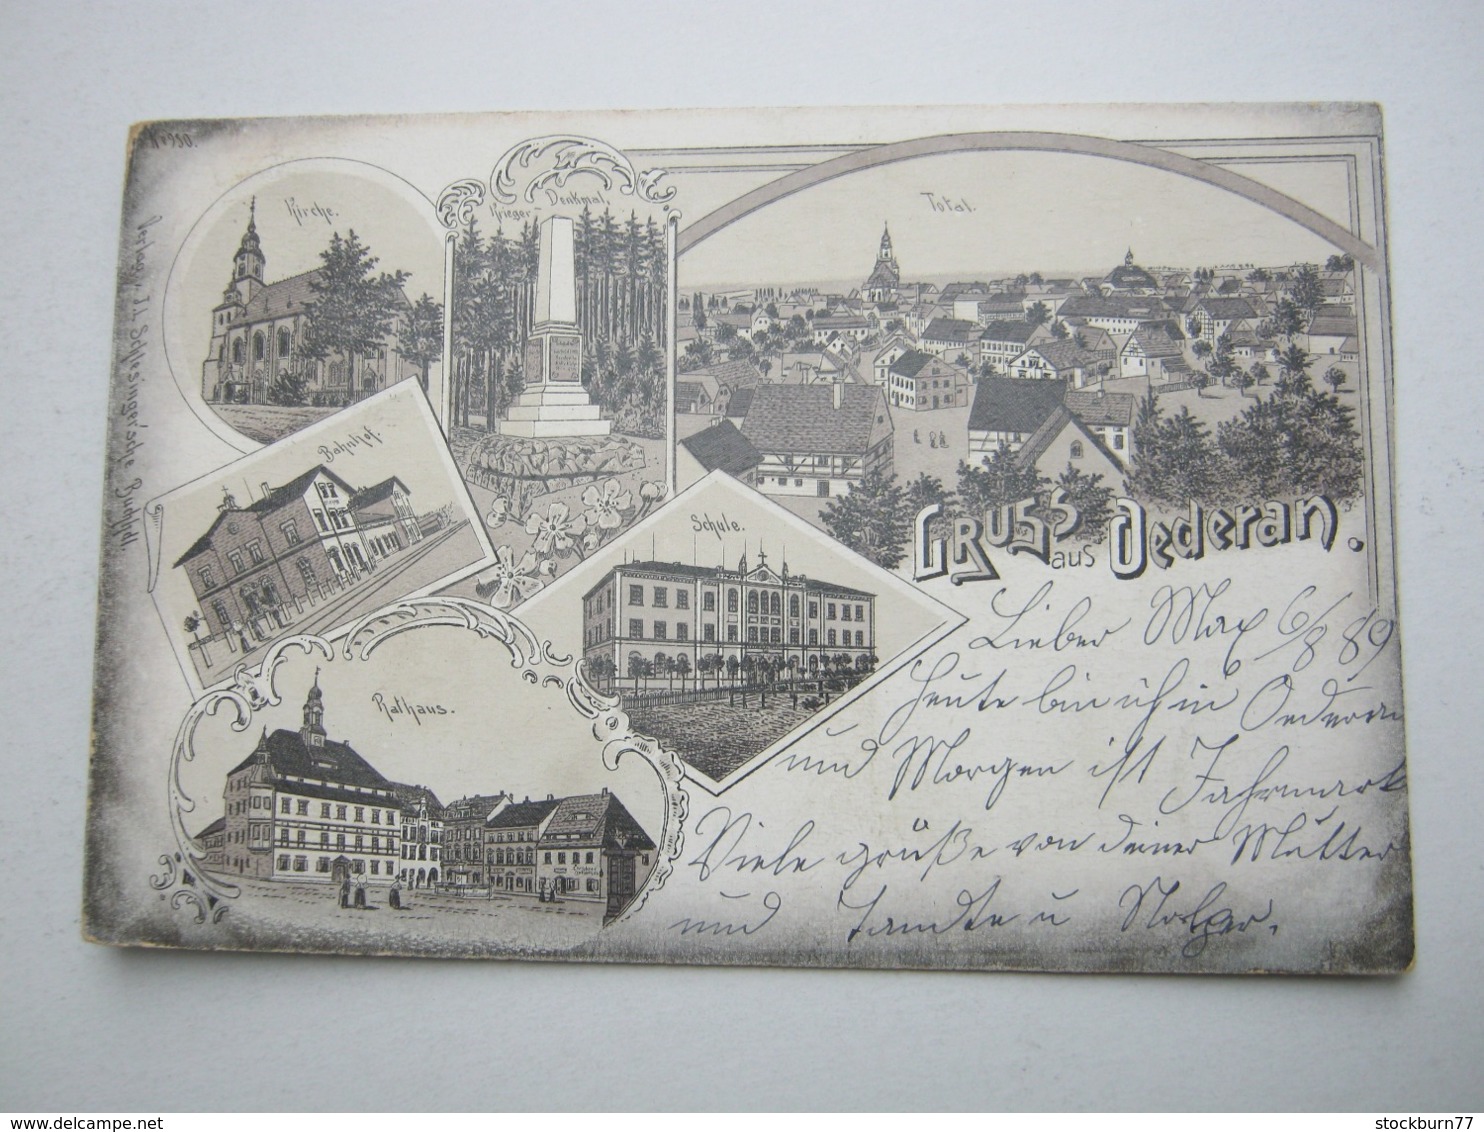 Nº 930.
Kirche.
Krieger Denkmal.
Total.
Bahnhof.
Schule.
Rathaus.
Gruss aus Oederan.
Lieber Max 6/8 89
heute bin ich in Oederan
und Morgen ist Jahrmark
Viele grüße von deiner Mutter
und Tandte u
Verlag v. J. L. Schlesinger'sche
www.delcampe.net
stockburn77